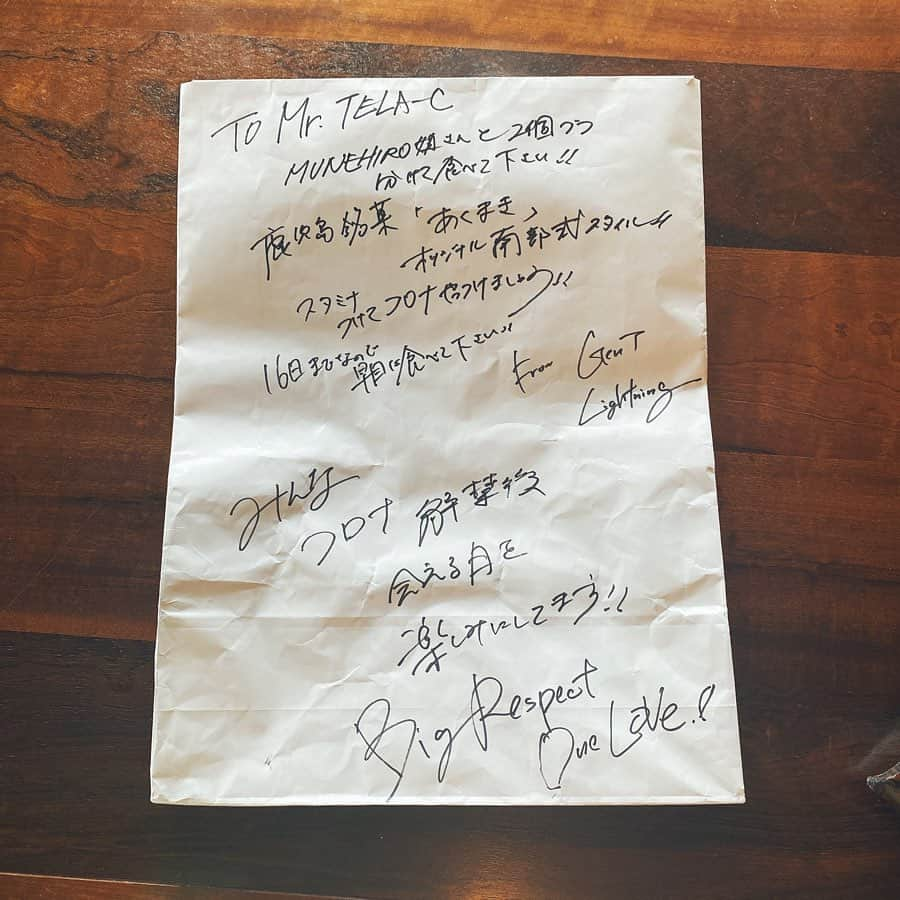 To Mr. TELA-C
MUNEHIRO姐さんと2個づつ
分けて食べて下さい!!
鹿児島銘菓「あくまき」
オリジナル南部式スタイル!!
スタミナ
つけてコロナやっつけましょう!!
16日までなので
早目に食べて下さい!!
From GenT
Lightning
みんな
コロナ解禁後
会える日を
楽しみにしてます!!
Big Respect
One Love.!!